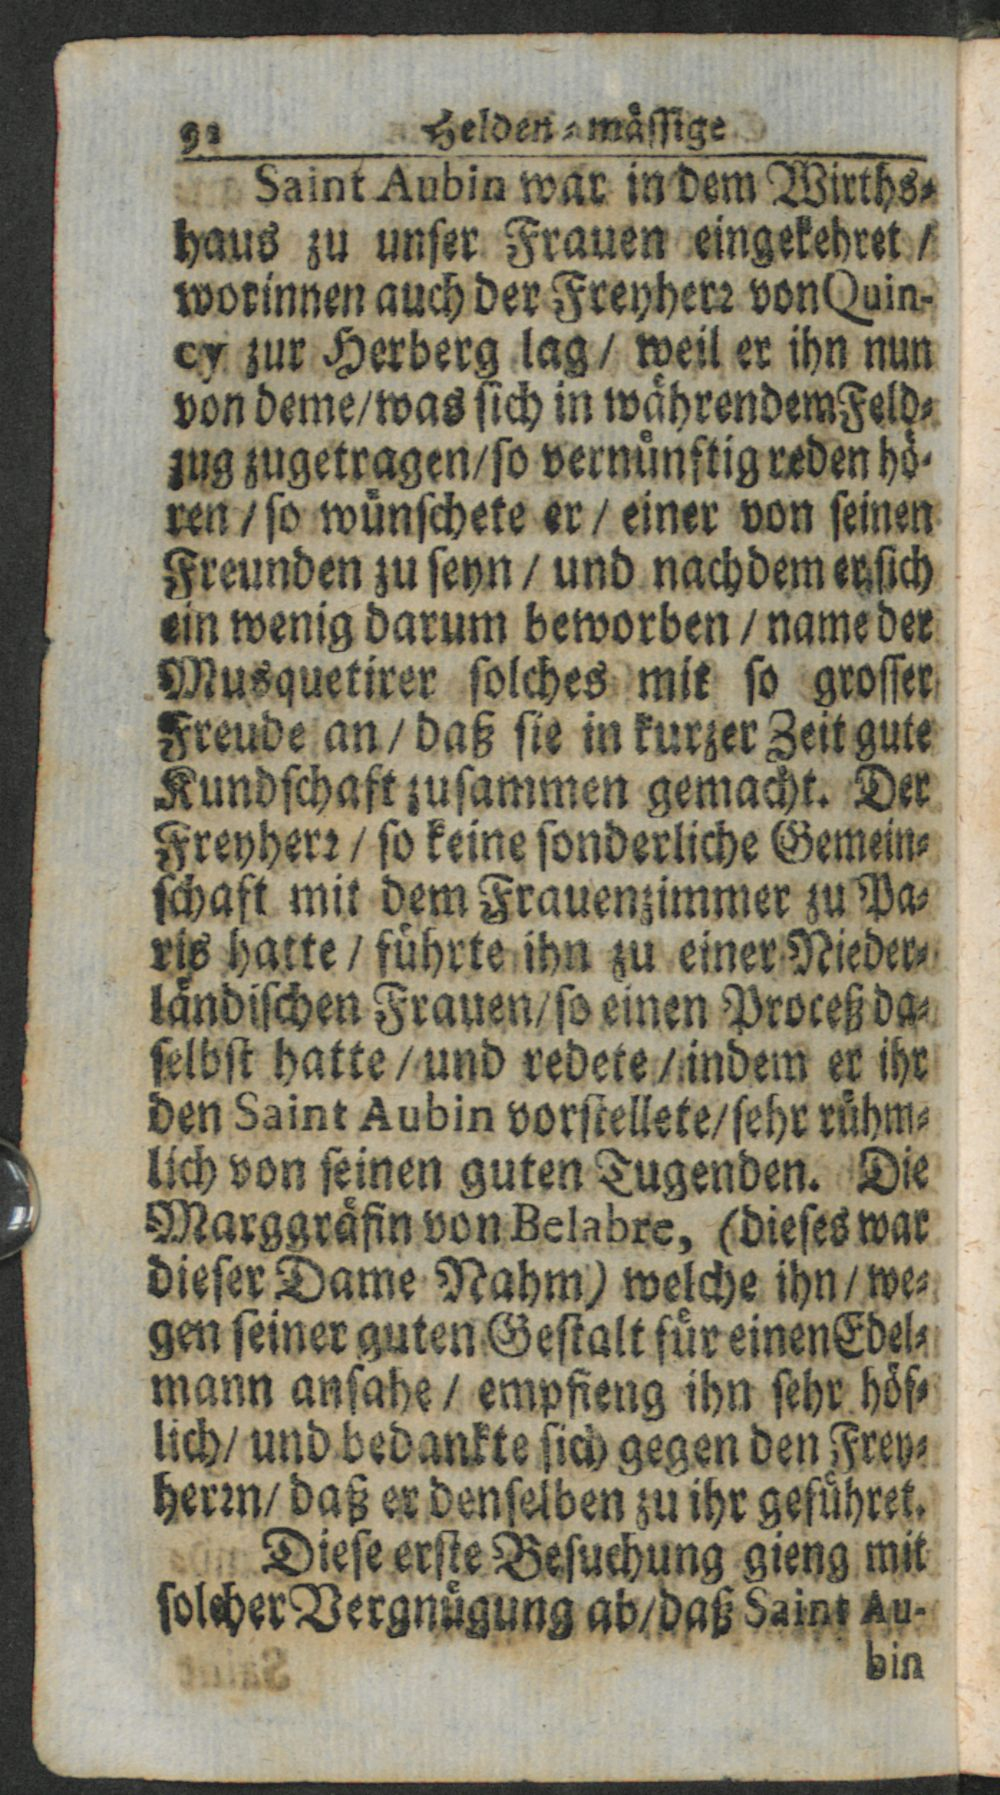 92 Helden-mässige
Saint Aubin war in dem Wirths-
haus zu unser Frauen eingekehret /
worinnen auch der Freyherr von Quin-
cy zur Herberg lag / weil er ihn nun
von deme / was sich in währendem Feld-
zug zugetragen / so vernünftig reden hö-
ren / so wünschete er / einer von seinen
Freunden zu seyn / und nachdem er sich
ein wenig darum beworben / name der
Musquetirer solches mit so grosser
Freude an / daß sie in kurzer Zeit gute
Kundschaft zusammen gemacht. Der
Freyherr / so keine sonderliche Gemein-
schaft mit dem Frauenzimmer zu Pa-
ris hatte / führte ihn zu einer Nieder-
ländischen Frauen / so einen Proceß da-
selbst hatte / und redete / indem er ihr
den Saint Aubin vorstellete / sehr rühm-
lich von seinen guten Tugenden. Die
Marggräfin von Belabre, (dieses war
dieser Dame Nahm) welche ihn / we-
gen seiner guten Gestalt für einen Edel-
mann ansahe / empfieng ihn sehr höf-
lich / und bedankte sich gegen den Frey-
herrn / daß er denselben zu ihr geführet.
Diese erste Besuchung gieng mit
solcher Vergnügung ab / daß Saint Au-
bin